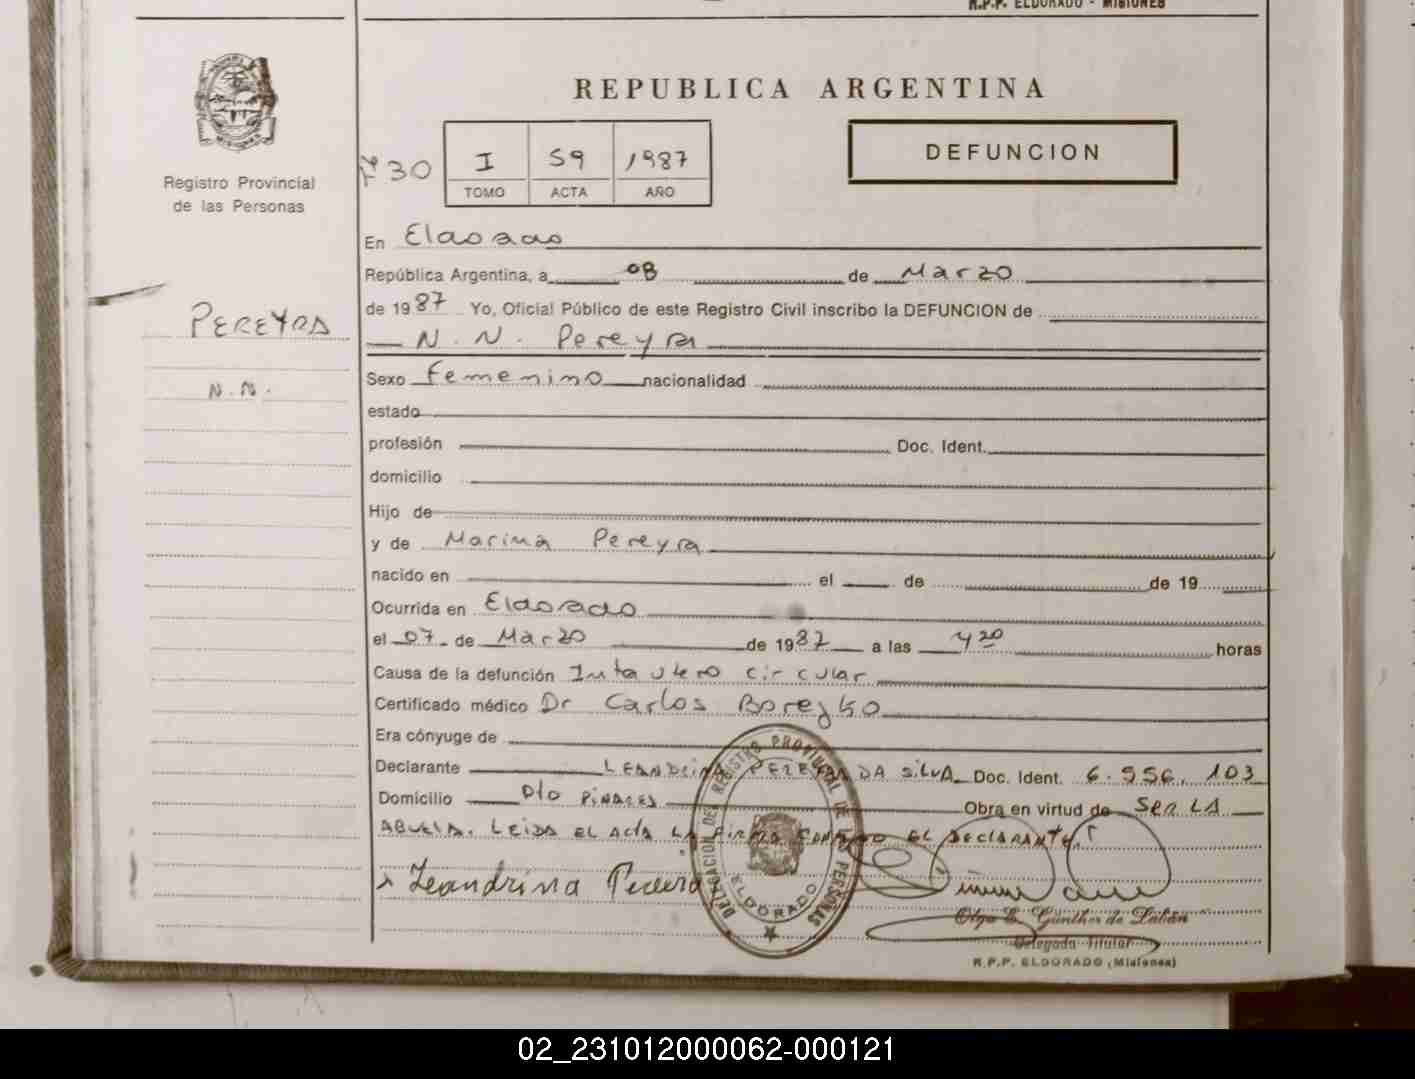 R.P.P. ELDORADO - MISIONES
REPUBLICA ARGENTINA
Nº 30
I 59 1987
TOMO ACTA AÑO
DEFUNCION
Registro Provincial
de las Personas
PEREYRA
N.N.
En Eldorado
República Argentina, a 08 de Marzo
de 1987 Yo, Oficial Público de este Registro Civil inscribo la DEFUNCION de
N. N. Pereyra
Sexo Femenino nacionalidad
estado
profesión Doc. Ident.
domicilio
Hijo de
y de Marina Pereyra
nacido en el de de 19
Ocurrida en Eldorado
el 07 de Marzo de 1987 a las 4 20 horas
Causa de la defunción Inta utero circular
Certificado médico Dr Carlos Boreyko
Era cónyuge de
Declarante LEANDRINA PEREYRA DA SILVA Doc. Ident. 6.556.103
Domicilio Dlo PINARES Obra en virtud de SER LA
ABUELA. LEIDA EL ACTA LA FIRMA CONMIGO EL DECLARANTE.
x Leandrina Pereira
DELEGACION DEL REGISTRO PROVINCIAL DE PERSONAS
ELDORADO
Olga E. Günther de
Delegada Titular
R.P.P. ELDORADO (Misiones)
02_231012000062-000121